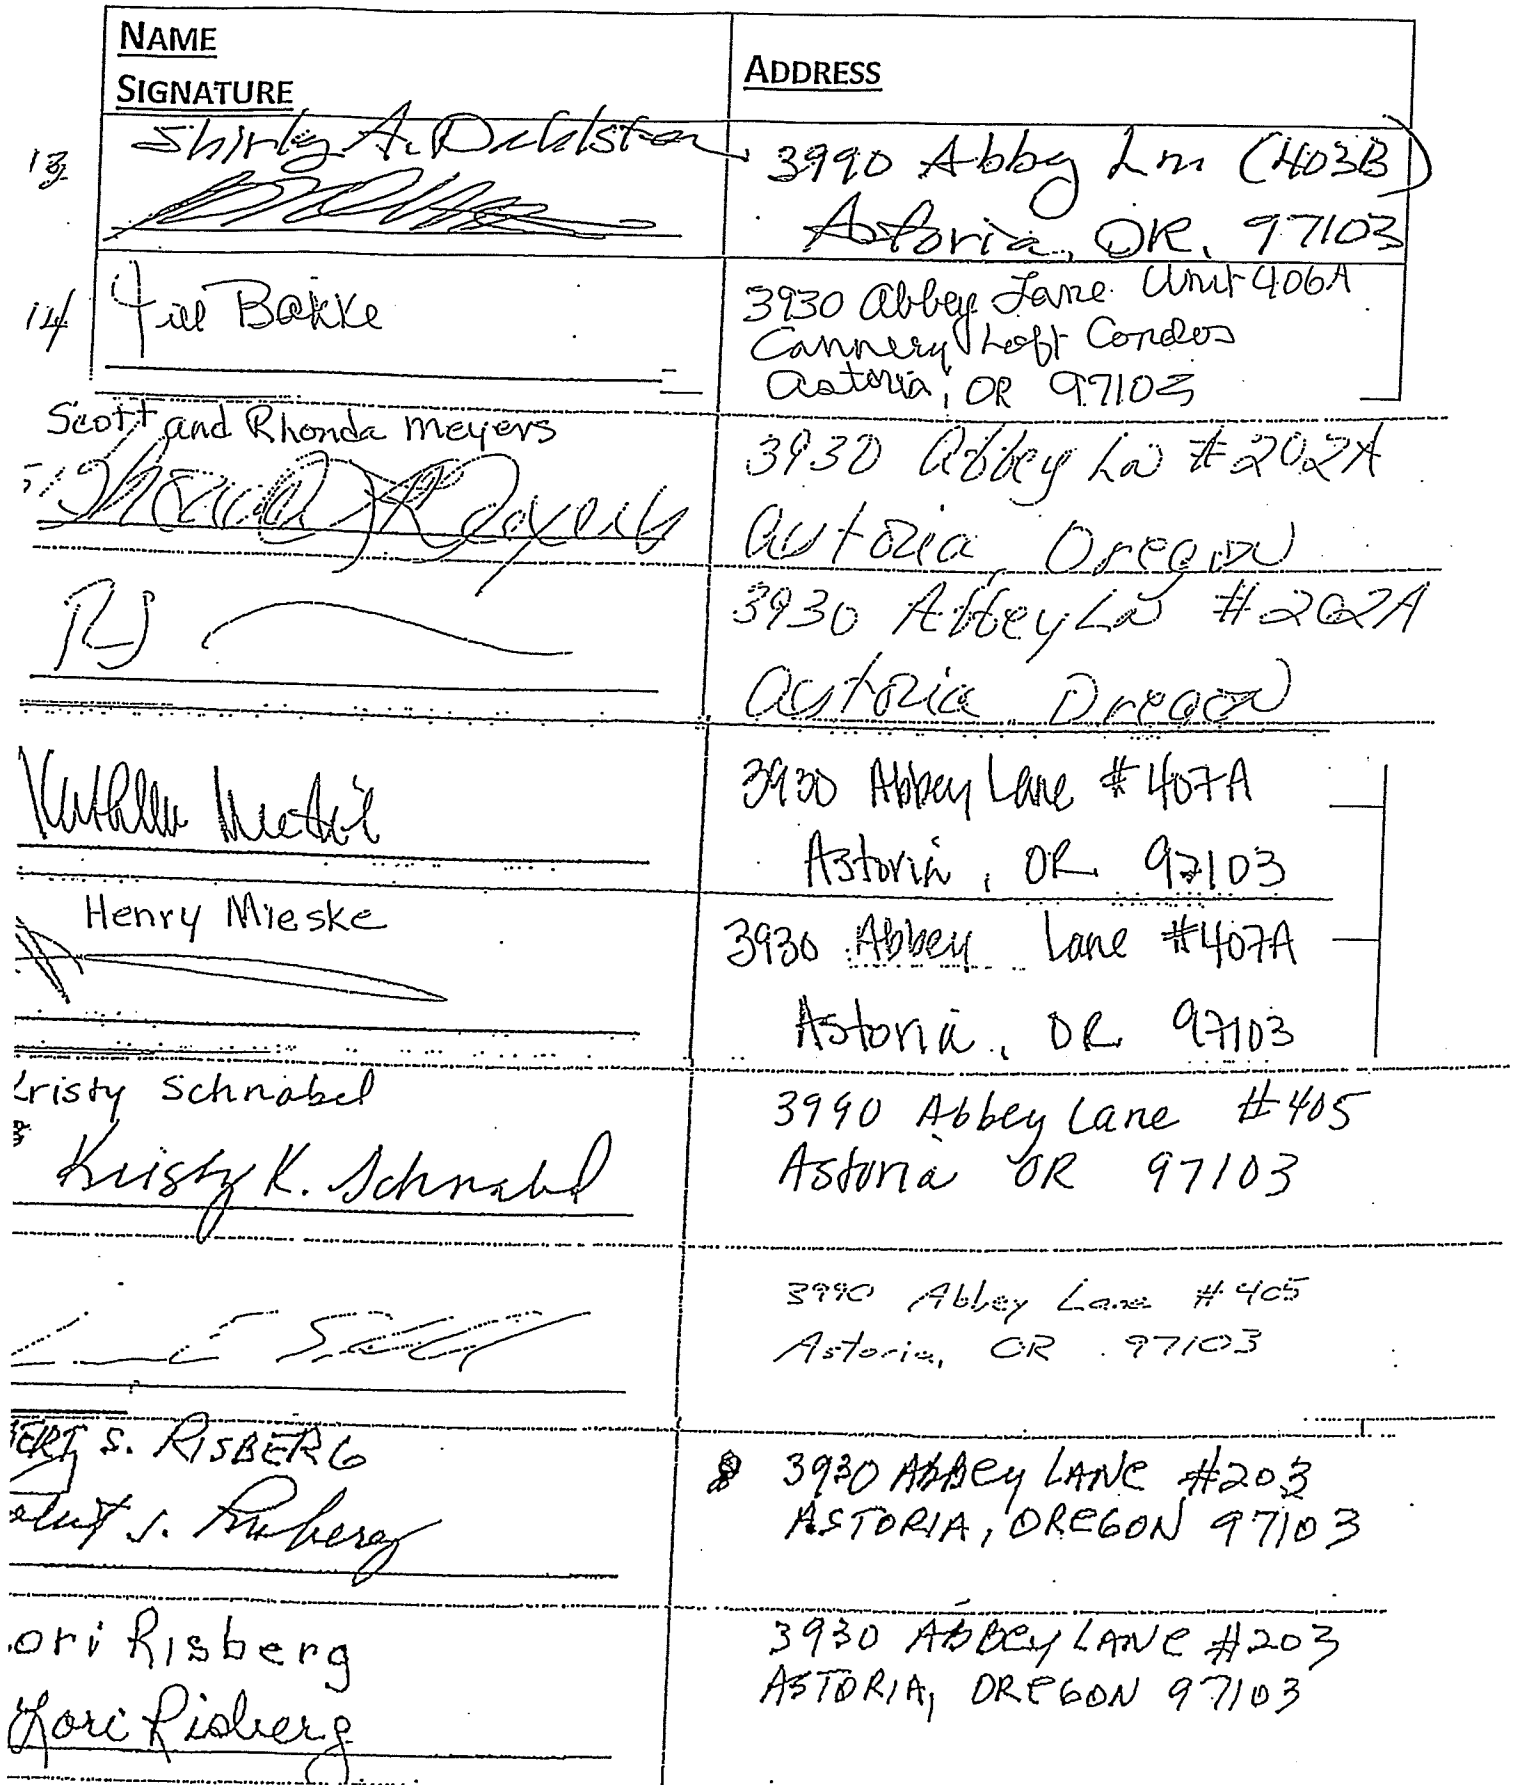 NAME
SIGNATURE
ADDRESS
13
Shirley A.
3990 Abby Ln (403B)
Astoria, OR, 97103
14
Jill Bakke
3930 Abbey Lane Unit 406A
Cannery Loft Condos
Astoria, OR 97103
Scott and Rhonda Meyers
3930 Abbey Ln #202A
Astoria, Oregon
3930 Abbey Ln #202A
Astoria Oregon
Kathleen
3930 Abbey Lane #407A
Astoria, OR 97103
Henry Mieske
3930 Abbey Lane #407A
Astoria, OR 97103
Kristy Schnabel
Kristy K. Schnabel
3990 Abbey Lane #405
Astoria OR 97103
3990 Abbey Lane #405
Astoria, OR 97103
ERT S. RISBERG
S. Risberg
3930 ABBEY LANE #203
ASTORIA, OREGON 97103
ori Risberg
Lori Risberg
3930 ABBEY LANE #203
ASTORIA, OREGON 97103